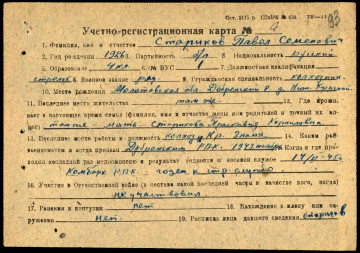 93
Учетно-регистрационная карта №
1. Фамилия, имя и отчество Стариков Павел Семенович
2. Год рождения 1926 г. Партийность б/п 3. Национальность русский
5. Образование 4 кл. 6. № ВУС 1 7. Должностная квалификация
стрелок 8. Военное звание ряд. 9. Гражданская специальность колхозник
10. Место рождения Молотовская обл.
11. Последнее место жительства там же 12. Где проживает
в настоящее время семья (фамилия, имя и отчество жены или родителей и точный их
адрес) мать - Старикова
13. Последнее место работы и должность колхоз Кр. Знамя 14. Каким райвоенкоматом
и когда призван РВК. 1943 15. Когда и где проходил
последний раз медкомиссию и результат годности к военной службе
РВК - годен к стр. службе
16. Участие в Отечественной войне (в составе какой последней части в качестве кого, когда)
не участвовал
17. Ранения и контузии нет 18. Нахождение в плену или окружении
нет. 19. Расписка лица давшего сведения Стариков